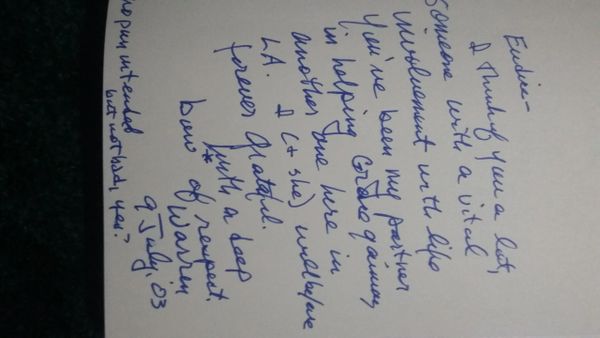 I think of you a lot,
Someone with a vital
involvement with life
You've been my partner
in helping gain
another one here in
LA. I (+ she) will be
forever grateful.
*with a deep
bow of respect.
Warren
9 July, 03
no pun intended
but not bad, yes?